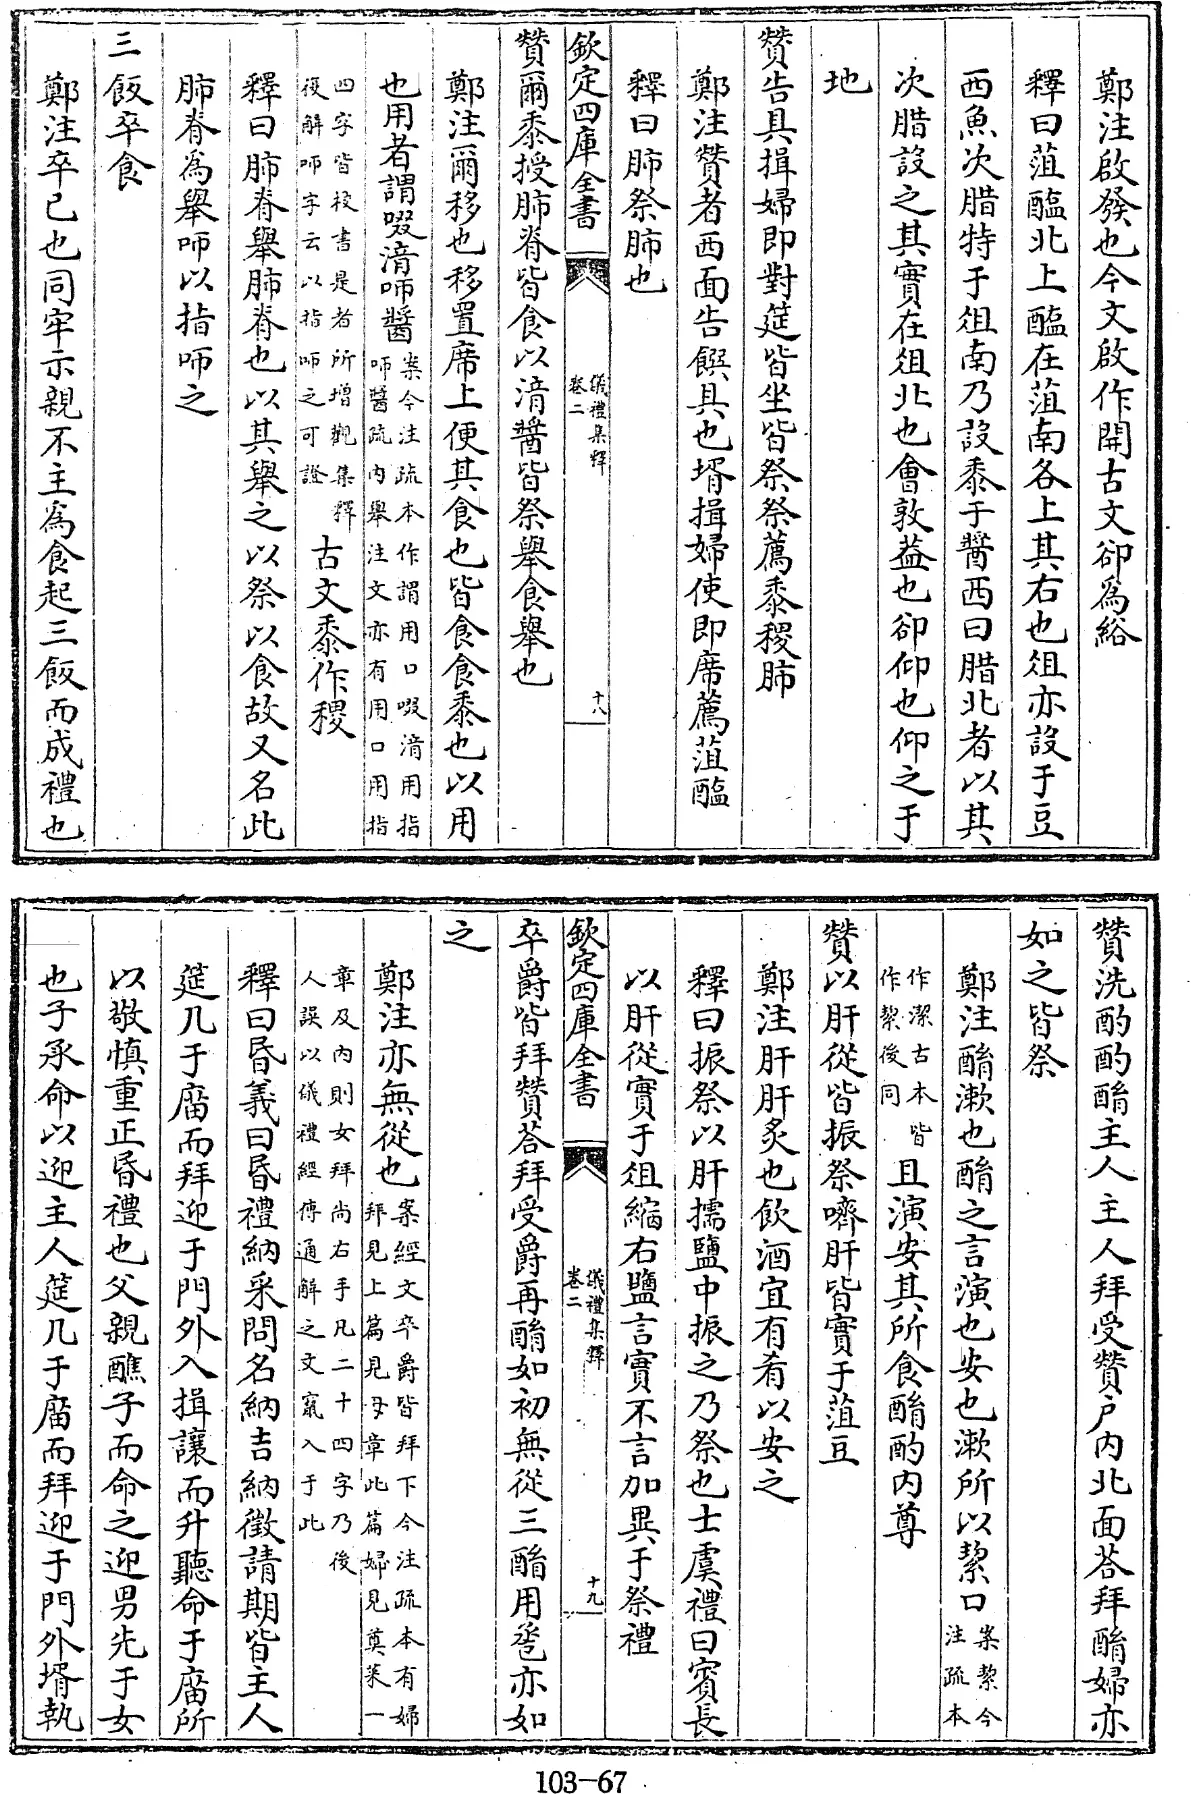 鄭注啟發也今文啟作開古文卻為綌
釋曰菹醢北上醢在菹南各上其右也俎亦設于豆
西魚次腊特于俎南乃設黍于醬西曰腊北者以其
次腊設之其實在俎北也會敦蓋也卻仰也仰之于
地
贊告具揖婦即對筵皆坐皆祭祭薦黍稷肺
鄭注贊者西面告饌具也壻揖婦使即席薦菹醢
釋曰肺祭肺也
欽定四庫全書
儀禮集釋
卷二
十八
贊爾黍授肺脊皆食以湆醬皆祭舉食舉也
鄭注爾移也移置席上便其食也皆食食黍也以用
也用者謂啜湆咂醬
案今注疏本作謂用口啜湆用指
咂醬疏内舉注文亦有用口用指
四字皆校書是者所增觀集釋
後解咂字云以指咂之可證
古文黍作稷
釋曰肺脊舉肺脊也以其舉之以祭以食故又名此
肺脊為舉咂以指咂之
三飯卒食
鄭注卒已也同牢示親不主為食起三飯而成禮也
贊洗酌酌酳主人主人拜受贊户内北面荅拜酳婦亦
如之皆祭
鄭注酳漱也酳之言演也安也漱所以絜口
案絜今
注疏本
作潔古本皆
作絜後同
且演安其所食酳酌内尊
贊以肝從皆振祭嚌肝皆實于菹豆
鄭注肝肝炙也飲酒宜有肴以安之
釋曰振祭以肝擩鹽中振之乃祭也士虞禮曰賓長
以肝從實于俎縮右鹽言實不言加異于祭禮
欽定四庫全書
儀禮集釋
卷二
十九
卒爵皆拜贊荅拜受爵再酳如初無從三酳用卺亦如
之
鄭注亦無從也
案經文卒爵皆拜下今注疏本有婦
拜見上篇見母章此篇婦見奠菜一
章及内則女拜尚右手凡二十四字乃後
人誤以儀禮經傳通解之文竄入于此
釋曰昏義曰昏禮納采問名納吉納徵請期皆主人
筵几于廟而拜迎于門外入揖讓而升聽命于廟所
以敬慎重正昏禮也父親醮子而命之迎男先于女
也子承命以迎主人筵几于廟而拜迎于門外壻執
103-67